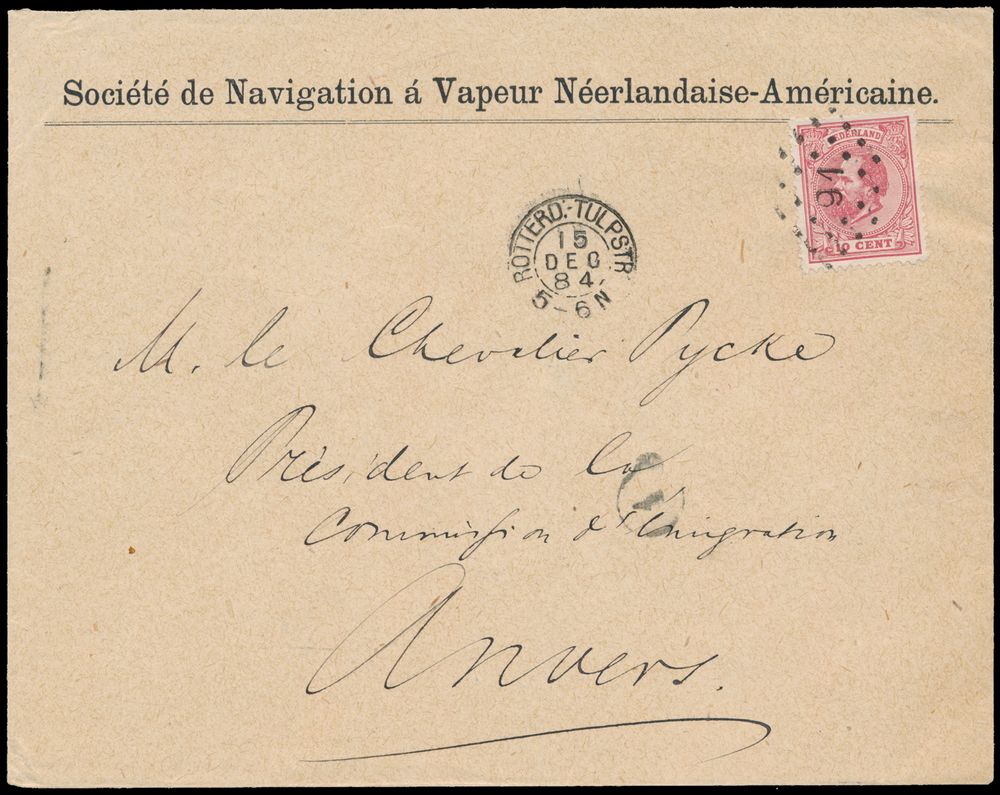 Société de Navigation á Vapeur Néerlandaise-Américaine.
NEDERLAND
91
10 CENT
ROTTERD.-TULPSTR
15
DEC
84
5-6N
M. le Chevalier Pycke
Président de la
1
Commission d'Emigration
Anvers.